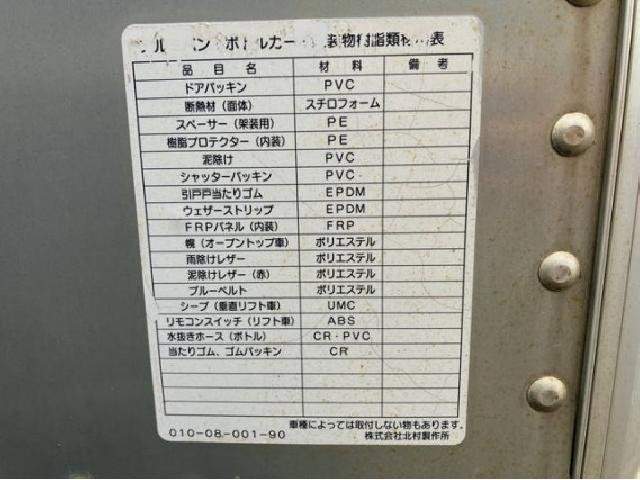 ボトルカー 装物樹脂類材 表
品目名 材料 備考
ドアパッキン PVC
断熱材（面体） スチロフォーム
スペーサー（架装用） PE
樹脂プロテクター（内装） PE
泥除け PVC
シャッターパッキン PVC
引戸戸当たりゴム EPDM
ウェザーストリップ EPDM
FRPパネル（内装） FRP
幌（オープントップ車） ポリエステル
雨除けレザー ポリエステル
泥除けレザー（赤） ポリエステル
ブルーベルト ポリエステル
シーブ（垂直リフト車） UMC
リモコンスイッチ（リフト車） ABS
水抜きホース（ボトル） CR・PVC
当たりゴム、ゴムパッキン CR
車種によっては取付しない物もあります。
010-08-001-90 株式会社北村製作所